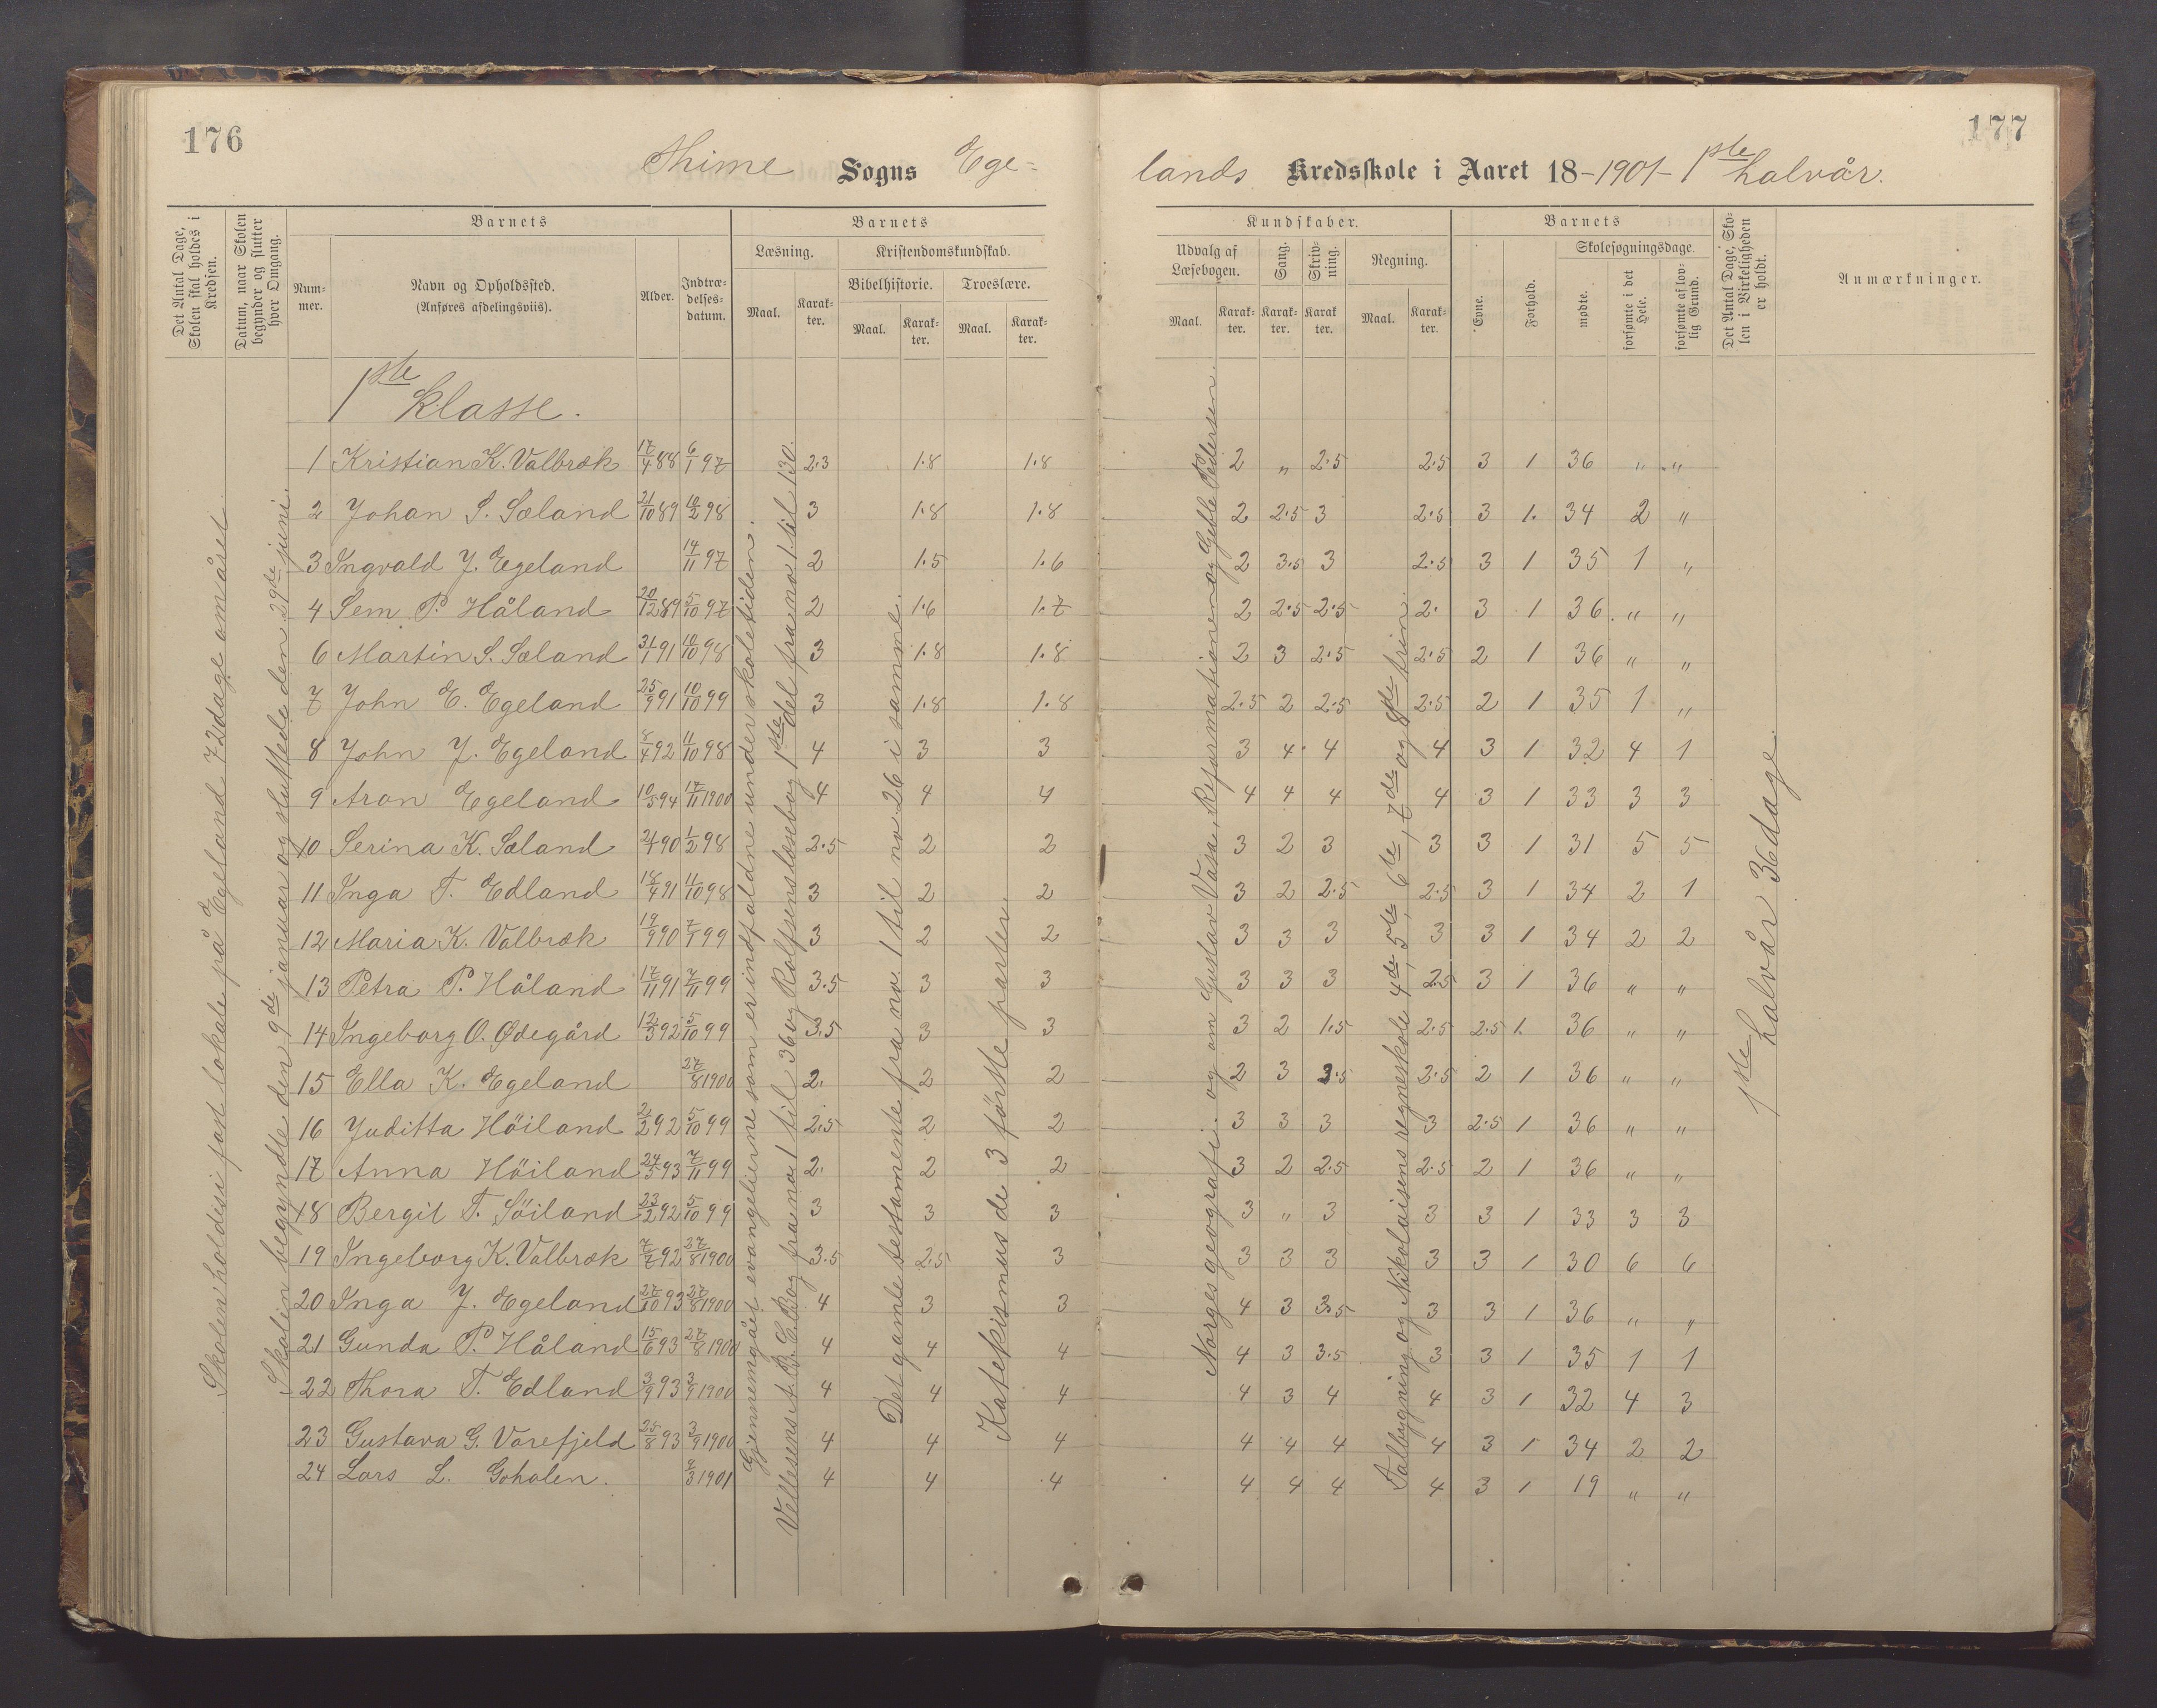 176
177
Thime Sogns Ege-
lands Kredsskole i Aaret 18-1901- 1ste halvår.
Det Antal Dage, Skolen skal holdes i Kredsen.
Datum, naar Skolen begynder og slutter hver Omgang.
Barnets
Num-mer.
Navn og Opholdssted. (Anføres afdelingsviis).
Alder.
Indtræ-delses-datum.
Barnets
Læsning.
Kristendomskundskab.
Bibelhistorie.
Troeslære.
Maal. Karak-ter. Maal. Karak-ter. Maal. Karak-ter.
Kundskaber.
Udvalg af Læsebogen.
Sang.
Skriv-ning.
Regning.
Maal. Karak-ter. Karak-ter. Karak-ter. Maal. Karak-ter.
Barnets
Evne.
Forhold.
Skolesøgningsdage.
mødte.
forsømte i det Hele.
forsømte af lov-lig Grund.
Det Antal Dage, Sko-len i Virkeligheden er holdt.
Anmærkninger.
1ste klasse.
1 Kristian K. Valbræk 17/4 88 6/1 97 2.3 1.8 1.8 2 „ 2.5 2.5 3 1 36 „ „
2 Johan S. Sæland 21/10 89 10/2 98 3 1.8 1.8 2 2.5 3 2.5 3 1. 34 2 „
3 Ingvald J. Egeland 14/11 97 2 1.5 1.6 2 3.5 3 2.5 3 1 35 1 „
4 Sem P. Håland 20/12 89 5/10 97 2 1.6 1.7 2 2.5 2.5 2. 3 1 36. „ „
6 Martin S. Sæland 31/1 91 10/10 98 3 1.8 1.8 2 3 2.5 2.5 2 1 36 „ „
7 John E. Egeland 25/9 91 10/10 99 3 1.8 1.8 2.5 2 2.5 2.5 2 1 35 1 „
8 John J. Egeland 8/4 92 11/10 98 4 3 3 3 4 4 4 3 1 32 4 1
9 Aron Egeland 10/5 94 17/11 1900 4 4 4 4 4 4 4 3 1 33 3 3
10 Serina K. Sæland 2/4 90 1/2 98 2.5 2 2 3 2 3 3 3 1 31 5 5
11 Inga T. Edland 18/4 91 11/10 98 3 2 2 3 2 2.5 2.5 3 1 34 2 1
12 Maria K. Valbræk 19/9 90 7/9 99 3 2 2 3 3 3 3 3 1 34 2 2
13 Petra P. Håland 17/11 91 7/11 99 3.5 3 3 3 3 3 2.5 3 1 36 „ „
14 Ingeborg O. Ødegård 12/3 92 5/10 99 3.5 3 3 3 2 1.5 2.5 2.5 1. 36 „ „
15 Ella K. Egeland 27/8 1900 2. 2 2 2 3 3.5 2.5 2 1 36 „ „
16 Juditta Höiland 2/2 92 5/10 99 2.5 2 2 3 3 3 3 2.5 1 36 „ „
17 Anna Höiland 24/5 93 7/11 99 2. 2 2 3 2 2.5 2.5 2 1 36 „ „
18 Bergit T. Söiland 23/2 92 5/10 99 3 3 3 3 „ 3 3 3 1 33 3 3
19 Ingeborg K. Valbræk 7/7 92 27/8 1900 3.5 2.5 3 3 3 3 3 3 1 30 6 6
20 Inga J. Egeland 27/10 93 27/8 1900 4 3 3 4 3 3.5 3 3 1 36 „ „
21 Gunda P. Håland 15/6 93 27/8 1900 4 4 4 4 3 3.5 3 3 1 35 1 1
22 Thora T. Edland 3/9 93 3/9 1900 4 4 4 4 3 4 4 3 1 32 4 3
23 Gustava G. Varefjeld 25/8 93 3/9 1900 4 4 4 4 4 4 4 3 1 34 2 2
24 Lars L. 3 1901 4 4 4 4 4 4 4 3 1 19 „ „
Skolen holdes i fast lokale på Egeland 72 dage om året.
Skolen begyndte den 9de januar og sluttede den 29de juni.
Gjennemgået evangelierne som er indfaldne under skoletiden.
Vellesens A.B.C. Bog fra no 1 til 36 og Rolfsens læsebog 1ste del fra no 1 til 130.
Det gamle testamente fra no. 1 til no 26 i samme.
Katekismus de 3 første parter.
Norges geografi. og om Gustav Vasa, Refurmationen og Geble Pedersen.
Talbygning og Nikolaisens regneskole 4de, 5te, 6te, 7de og 8de trin.
1ste halvår 36 dage.